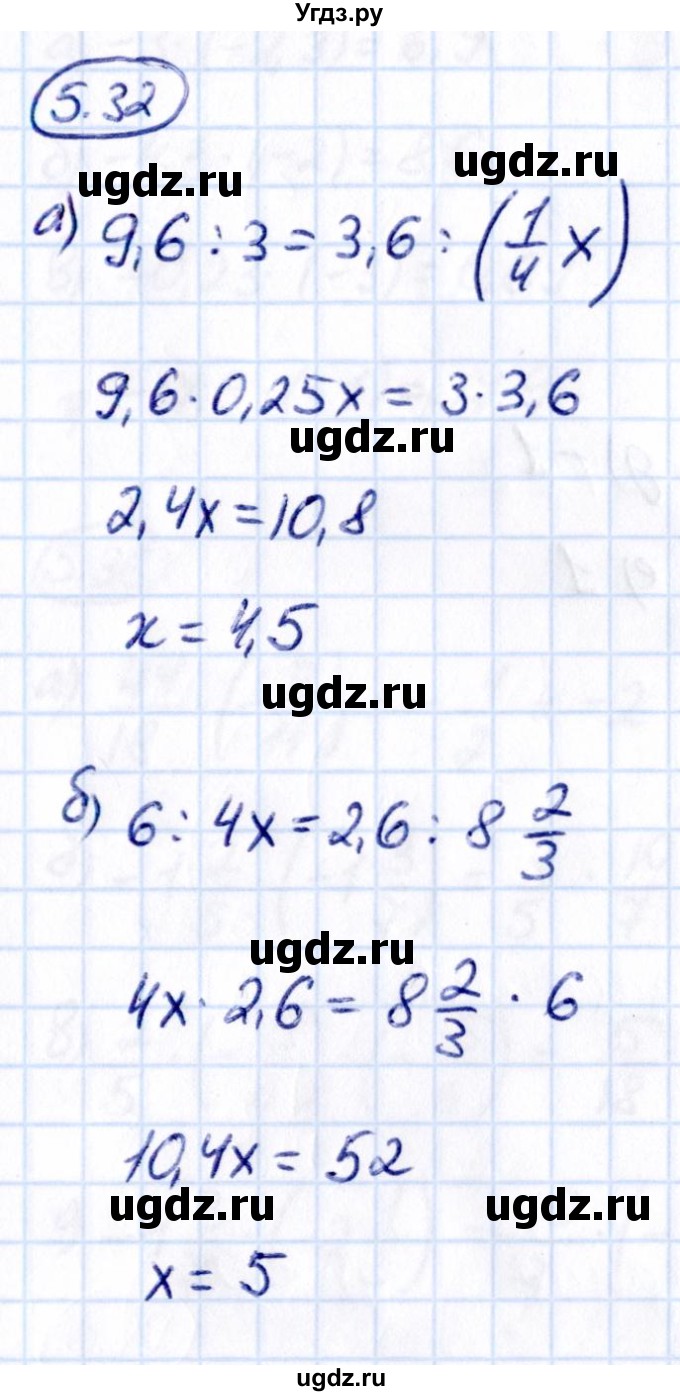 Угдз.ру
5.32
ugdz.ru
ugdz.ru
а) 9,6 : 3 = 3,6 : (1/4 x)
9,6 · 0,25x = 3 · 3,6
ugdz.ru
2,4x = 10,8
x = 4,5
ugdz.ru
б) 6 : 4x = 2,6 : 8 2/3
ugdz.ru
4x · 2,6 = 8 2/3 · 6
10,4x = 52
ugdz.ru
ugdz.ru
x = 5
ugdz.ru